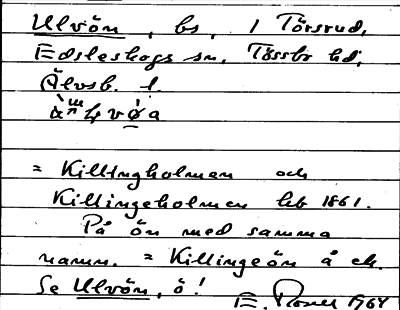 Ulvön, bs, i Törsrud,
Edsleskogs sn, Tössbo hd,
Älvsb. l.
= Killingholmen och
Killingeholmen hb 1861.
På ön med samma
namn. = Killingeön å ek.
Se Ulvön, ö!
E. Rosell 1964